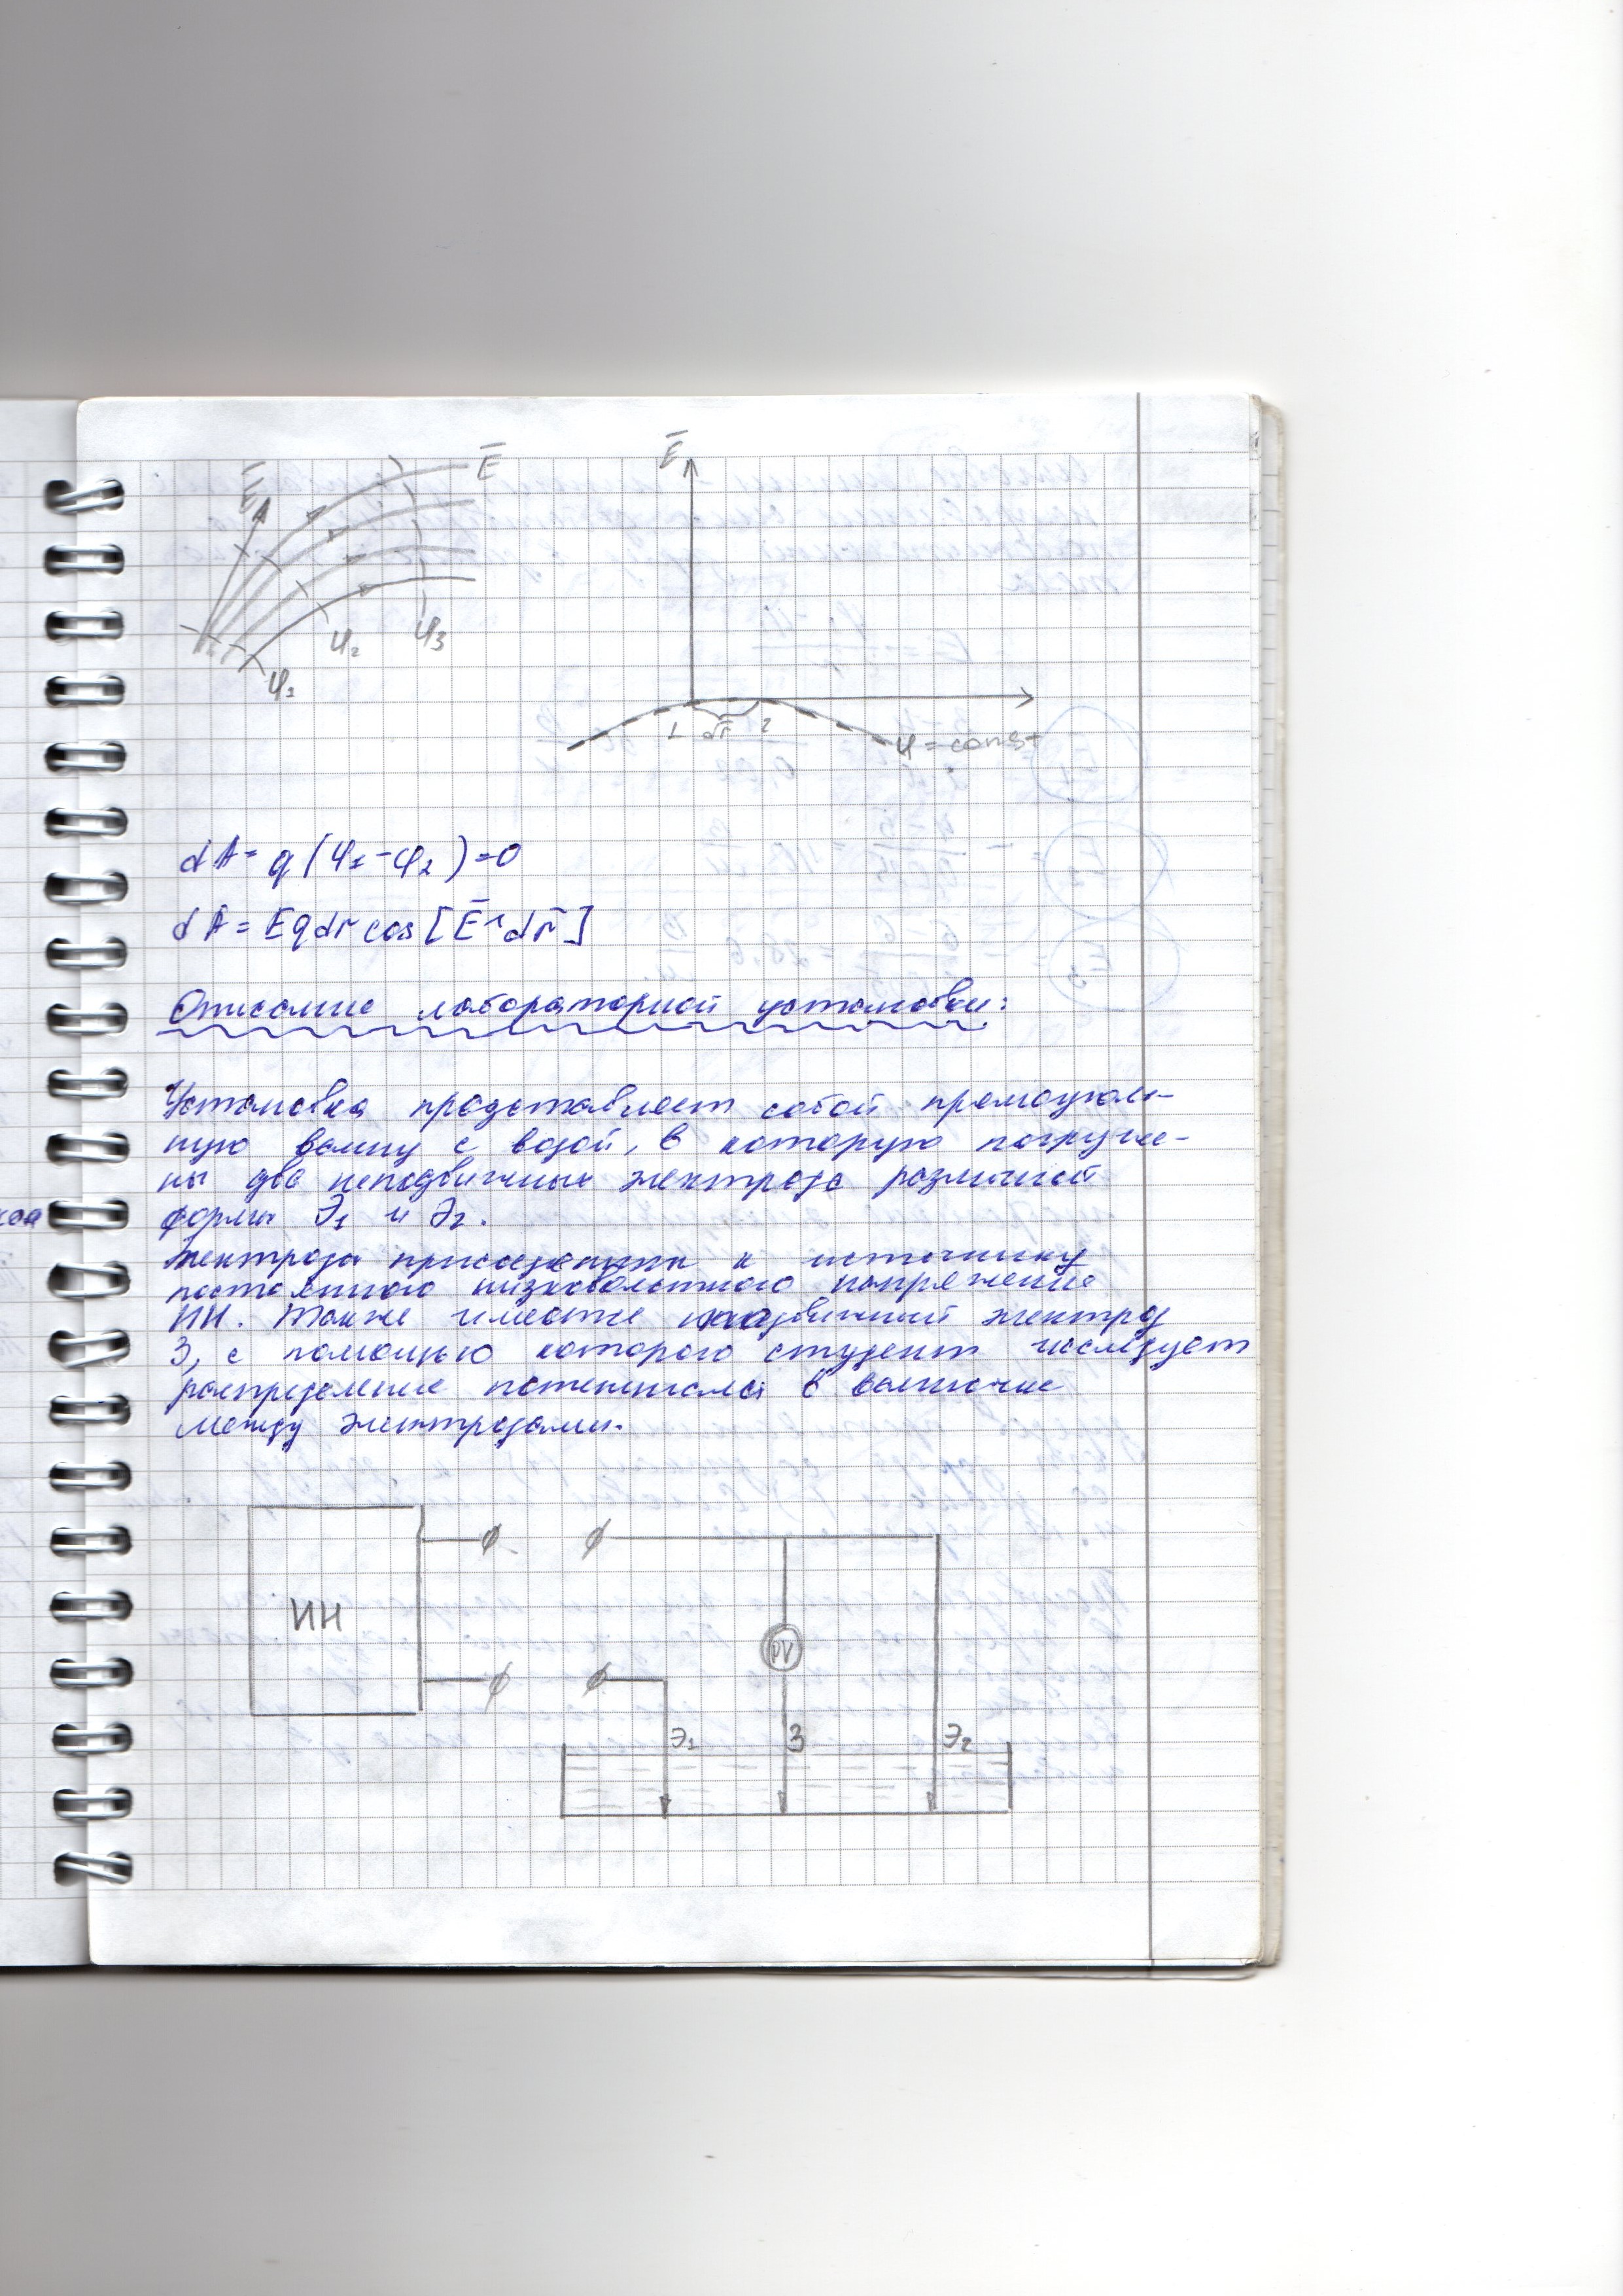 E̅ E̅ E̅
φ₁ φ₂ φ₃
1 dr̅ 2 φ = const
dA = q(φ₁ - φ₂) = 0
dA = Eqdr cos [E̅^dr̅]
Описание лабораторной установки:
Установка представляет собой прямоуголь-
ную ванну с водой, в которую погруже-
ны два неподвижных электрода различной
формы Э₁ и Э₂.
Электроды присоединены к источнику
постоянного низковольтного напряжения
ИН. Также имеется подвижный электрод
З, с помощью которого студент исследует
распределение потенциала в ванночке
между электродами.
ИН
PV
Э₁ З Э₂